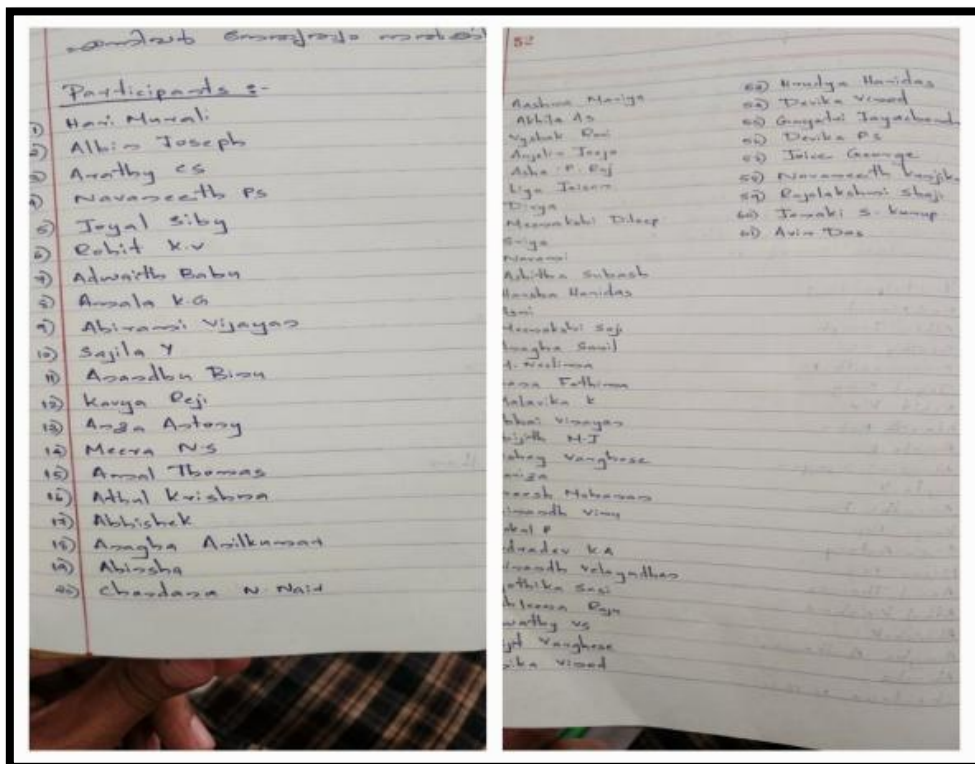 Participants :-
1) Hari Murali
2) Albin Joseph
3) Arathy CS
4) Navaneeth PS
5) Joyal Siby
6) Rohit K.V
7) Adwaith Babu
8) Amala K.G
9) Abirami Vijayan
10) Sajila Y
11) Anandhu Binu
12) Kavya Reji
13) Antony
14) Meera N.S
15) Amal Thomas
16) Athul Krishna
17) Abhishek
18) Anagha Anilkumar
19) Abinsha
20) Chandana N. Nair
52
Aashna Mariya
Akhila AS
Vyshak Ravi
Anjelin Jeeja
Asha P. Raj
Liya Jaison
Divya
Meenakshi Dileep
Sriya
Navami
Ashitha Subash
Harsha Haridas
Meenakshi Saji
Sunil
Fathima
Malavika K
Vinayan
M.J
Varghese
Mohanan
Vinu
K.A
Velayudhan
Sasi
Raju
VS
Varghese
Vinod
53) Hrudya Haridas
54) Devika Vinod
55) Gayatri
56) Devika PS
57) Joice George
58) Navaneeth
59) Rajalakshmi Shaji
60) Janaki S. Kurup
61) Avin Das